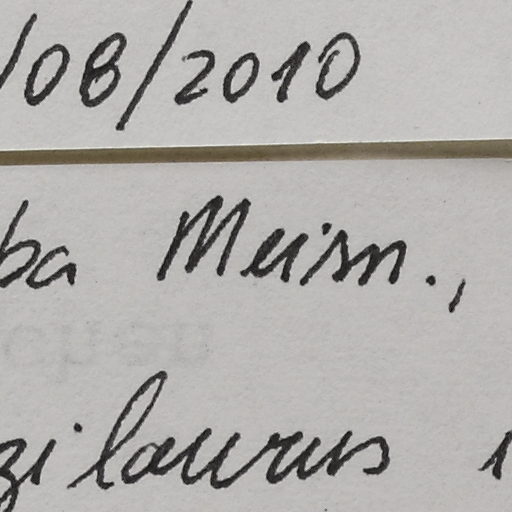 /08/2010
ba Meisn.,
zilaurus